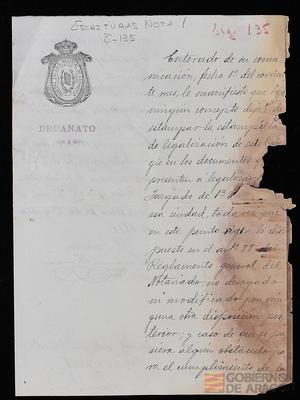 ESCRITURAS NOTA 1
8-135
135
DECANATO
Enterado de su comu
nicación, fecha 1º del corrien
te mes, le manifiesto que bajo
ningun concepto deje de
estampar la estampilla
de legalización de este Cole
gio en los documentos que
presenten a legalizar
Juzgado de 1ª
esa ciudad, toda vez que
en este punto rige lo dis
puesto en el artº 77 del
Reglamento general del
Notariado, no derogado
ni modificado por nin
guna otra disposición pos
terior; y caso de que se pu
siera algun obstáculo pa
ra el cumplimiento de lo
GOBIERNO
DE ARAGON